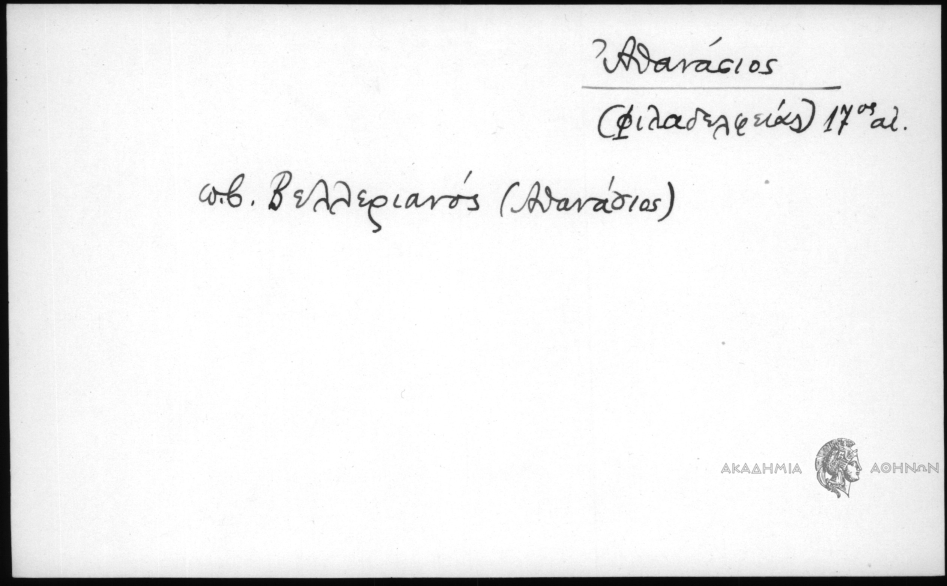 Ἀθανάσιος
(Φιλαδελφείας) 17ος αἰ.
π.β. Βελλεριανός (Ἀθανάσιος)
ΑΚΑΔΗΜΙΑ ΑΘΗΝΩΝ